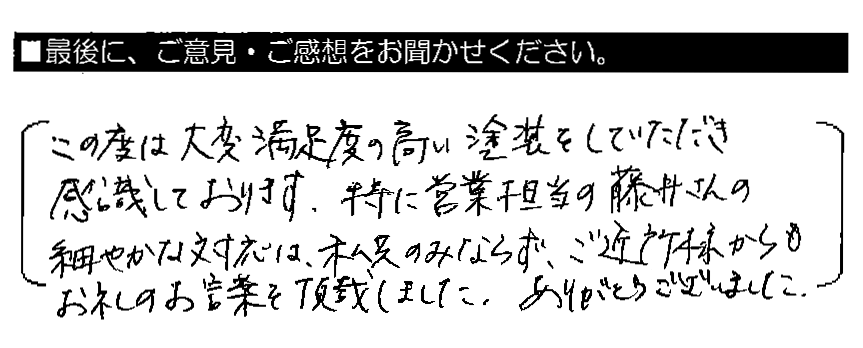 ■最後に、ご意見・ご感想をお聞かせください。
この度は大変満足度の高い塗装をしていただき
感謝しております。特に営業担当の藤井さんの
細やかな対応は、私共のみならず、ご近所様からも
お礼のお言葉を頂戴しました。ありがとうございました。